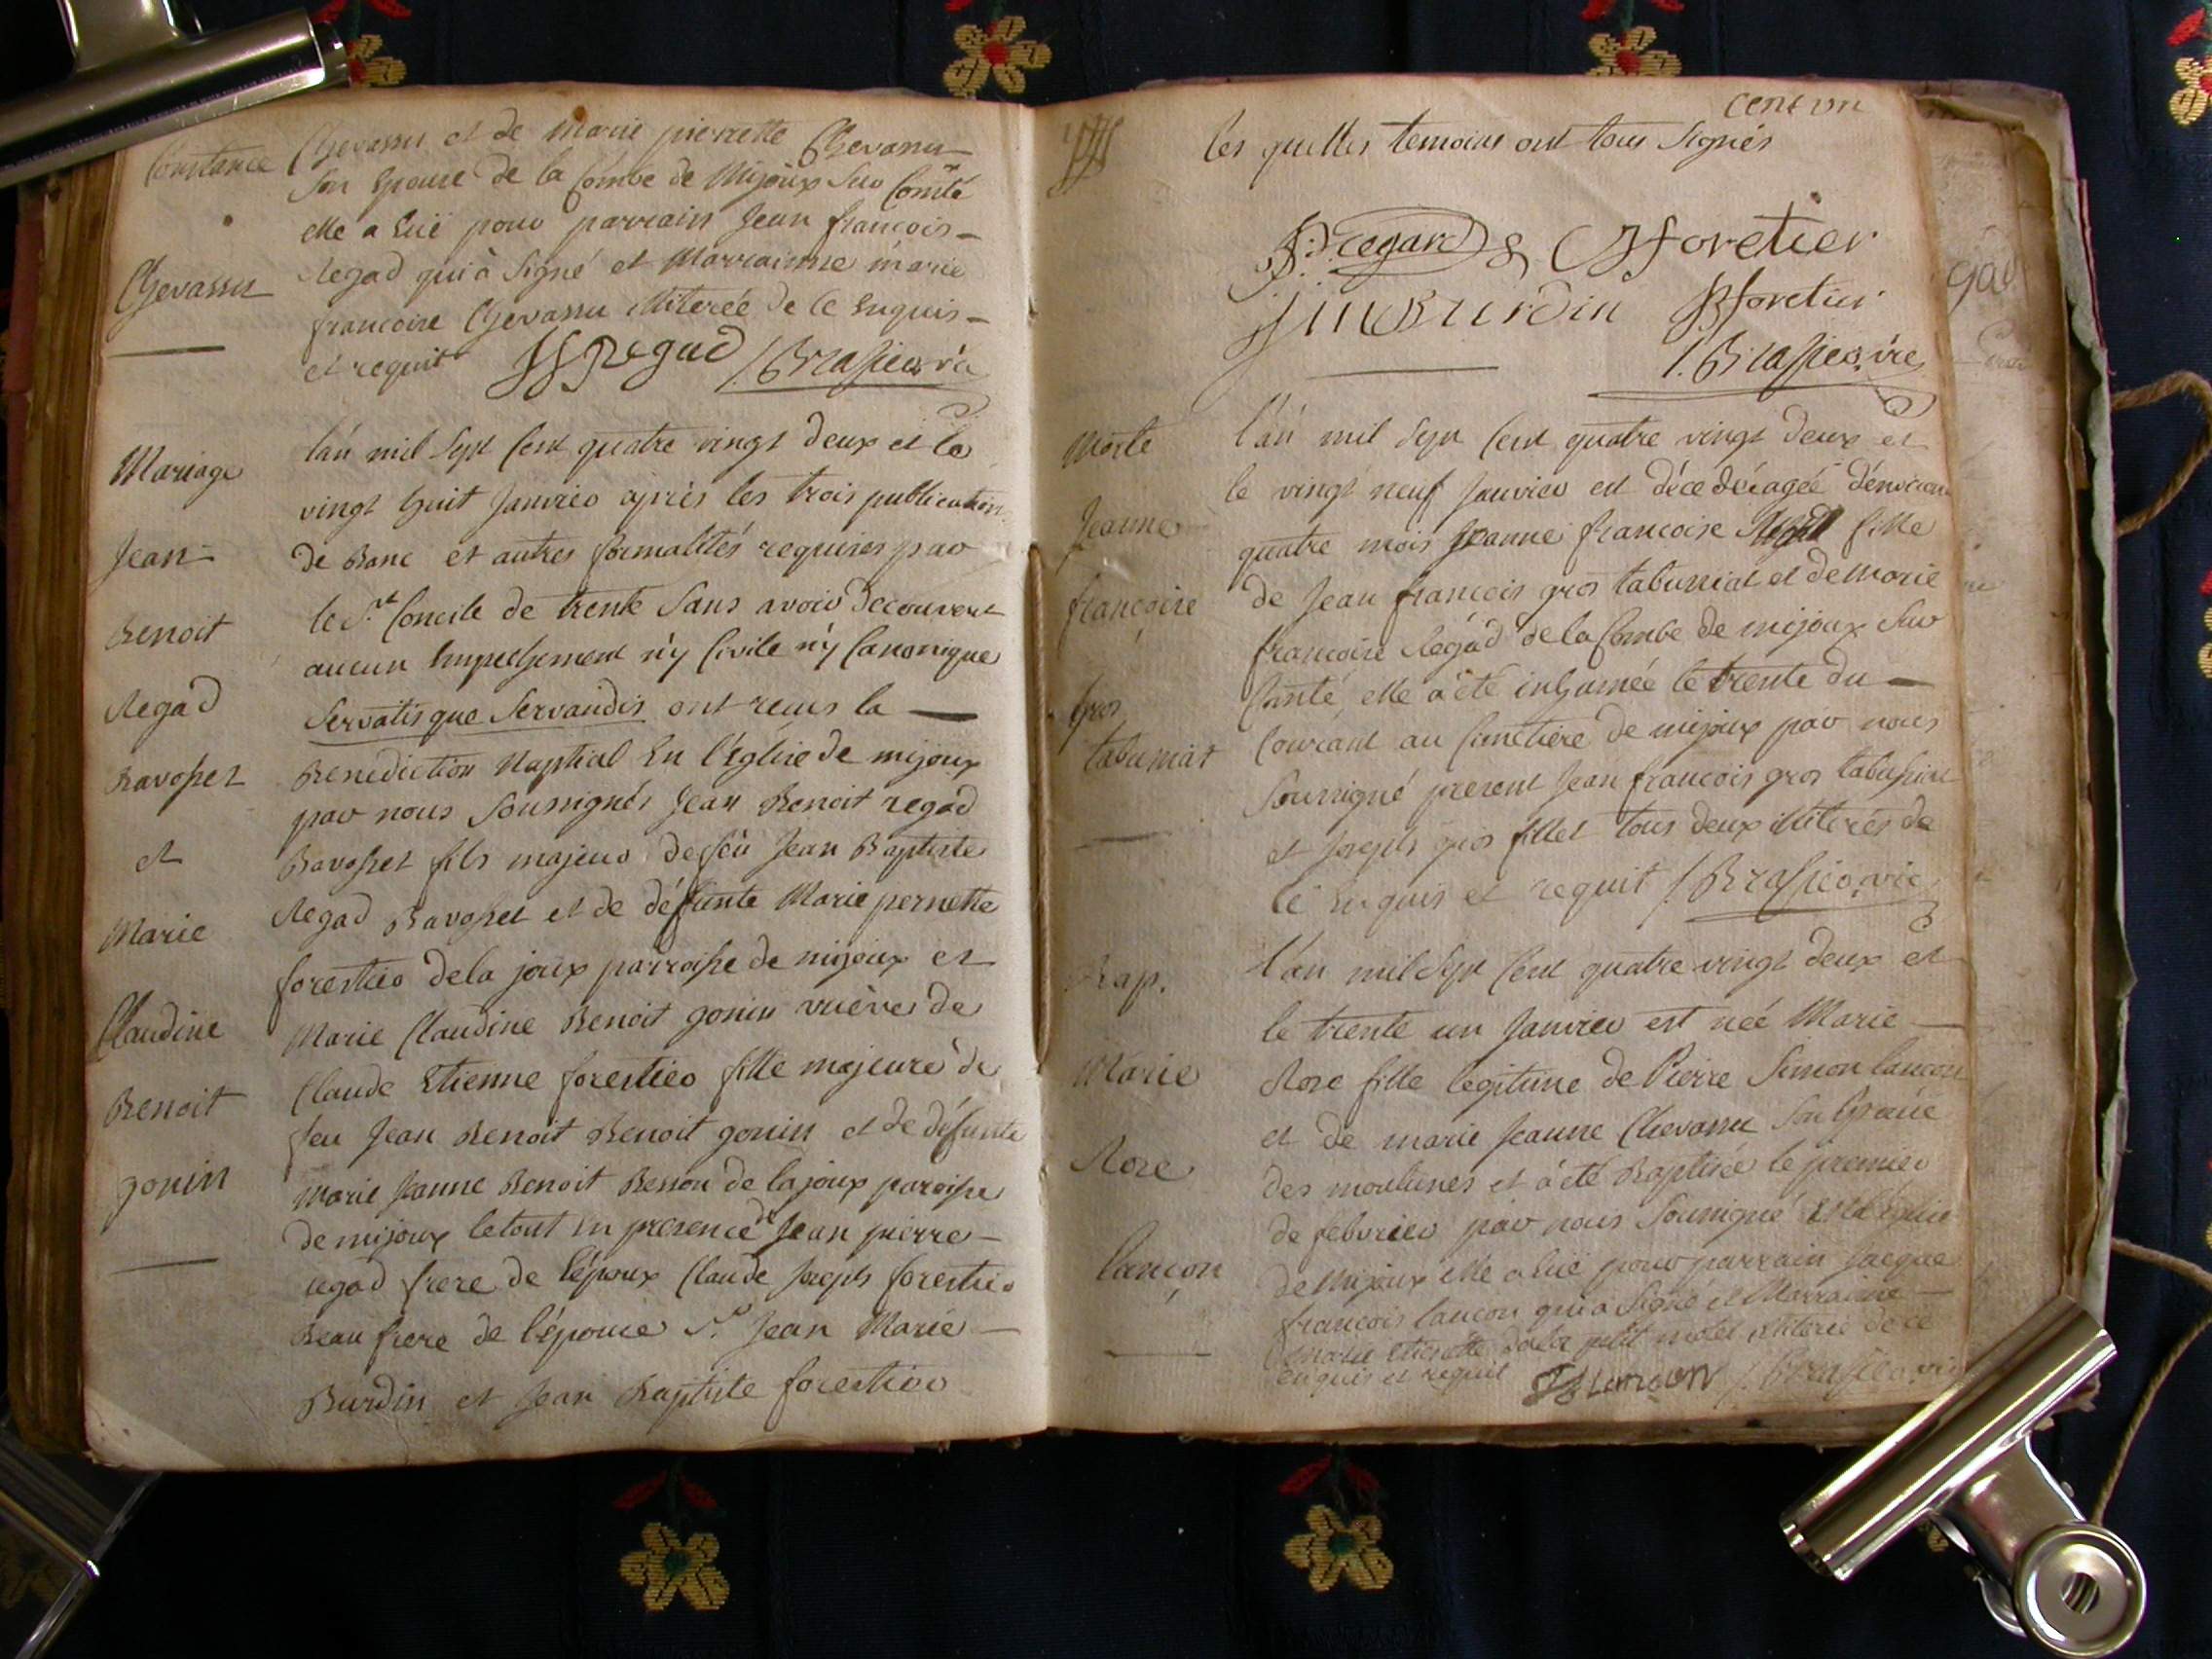 Constance
Chevassu
Chevassu et de Marie pierrette Chevassu
Son Epouse de la Combe de Mijoux Sur Comté
elle a Eüe pour parrain Jean françois
Regad qui à Signé et Marrainne marie
francoise Chevassu illiterée de ce Enquis
et requit JF Regad / Brasier vic
Mariage
Jean
Benoit
Regad
Bavosset
et
Marie
Claudine
Benoit
gonin
L'an mil Sept Cent quatre vingt deux et le
vingt huit Janvier après les trois publication
de Banc et autres formalités requises par
le St. Concile de trente Sans avoir decouvert
aucun Empechement n'y Civile n'y Canonique
Servatisque Servandis ont reçus la
Benediction Nuptial En l'Eglise de mijoux
par nous Soussignés Jean Benoit regad
Bavosset fils majeur de feu Jean Baptiste
Regad Bavosset et de défunte Marie pernette
forestier de la joux parroisse de mijoux et
Marie Claudine Benoit gonin de
Claude Etienne forestier fille majeure de
feu Jean Benoit Benoit gonin et de défunte
marie Jeanne Benoit Besson de la joux paroisse
de mijoux le tout En presence de Jean pierre
regad frere de l'époux Claude Joseph forestier
Beau frere de l'épouse Sr. Jean Marie
Burdin et Jean Baptiste forestier
cent un
les quelles temoins ont tous Signés
regard CJ foretier
JM Burdin JB foretier
/. Brasier, vic
Morte
Jeanne
françoise
gros
tabussiat
L'an mil Sept Cent quatre vingt deux et
le vingt neuf Janvier est décedée agée d'environ
quatre mois Jeanne francoise fille
de Jean francois gros tabussiat et de Marie
francoise Regad de la Combe de mijoux Sur
Comté, elle a été inhumée le trente du
Courant au Cimetiere de mijoux par nous
Soussigné present Jean francois gros tabussiat
et Joseph gros fillet tous deux illiterés de
ce Enquis et requit /. Brasier, vic
Bap.
Marie
Rose
Lançon
L'an mil Sept Cent quatre vingt deux et
le trente un Janvier est née Marie
Rose fille legitime de Pierre Simon lancon
et de marie Jeanne Chevassu Son Epouse
des moulunes et à été Baptisée le premier
de febvrier par nous Soussigné En l'Eglise
de Mijoux elle a Eüe pour parrain Jacque
francois lancon qui a Signé et Marrainne
Marie petit motet illiterée de ce
enquis et requit JF Lançon /. Brasier, vic